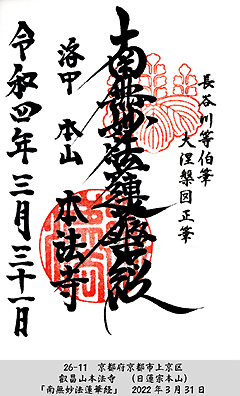 長谷川等伯筆
大涅槃図正筆
南無妙法蓮華経
洛中 本山 本法寺
令和四年三月三十一日
26-11 京都府京都市上京区
叡昌山本法寺 (日蓮宗本山)
「南無妙法蓮華経」 2022年3月31日